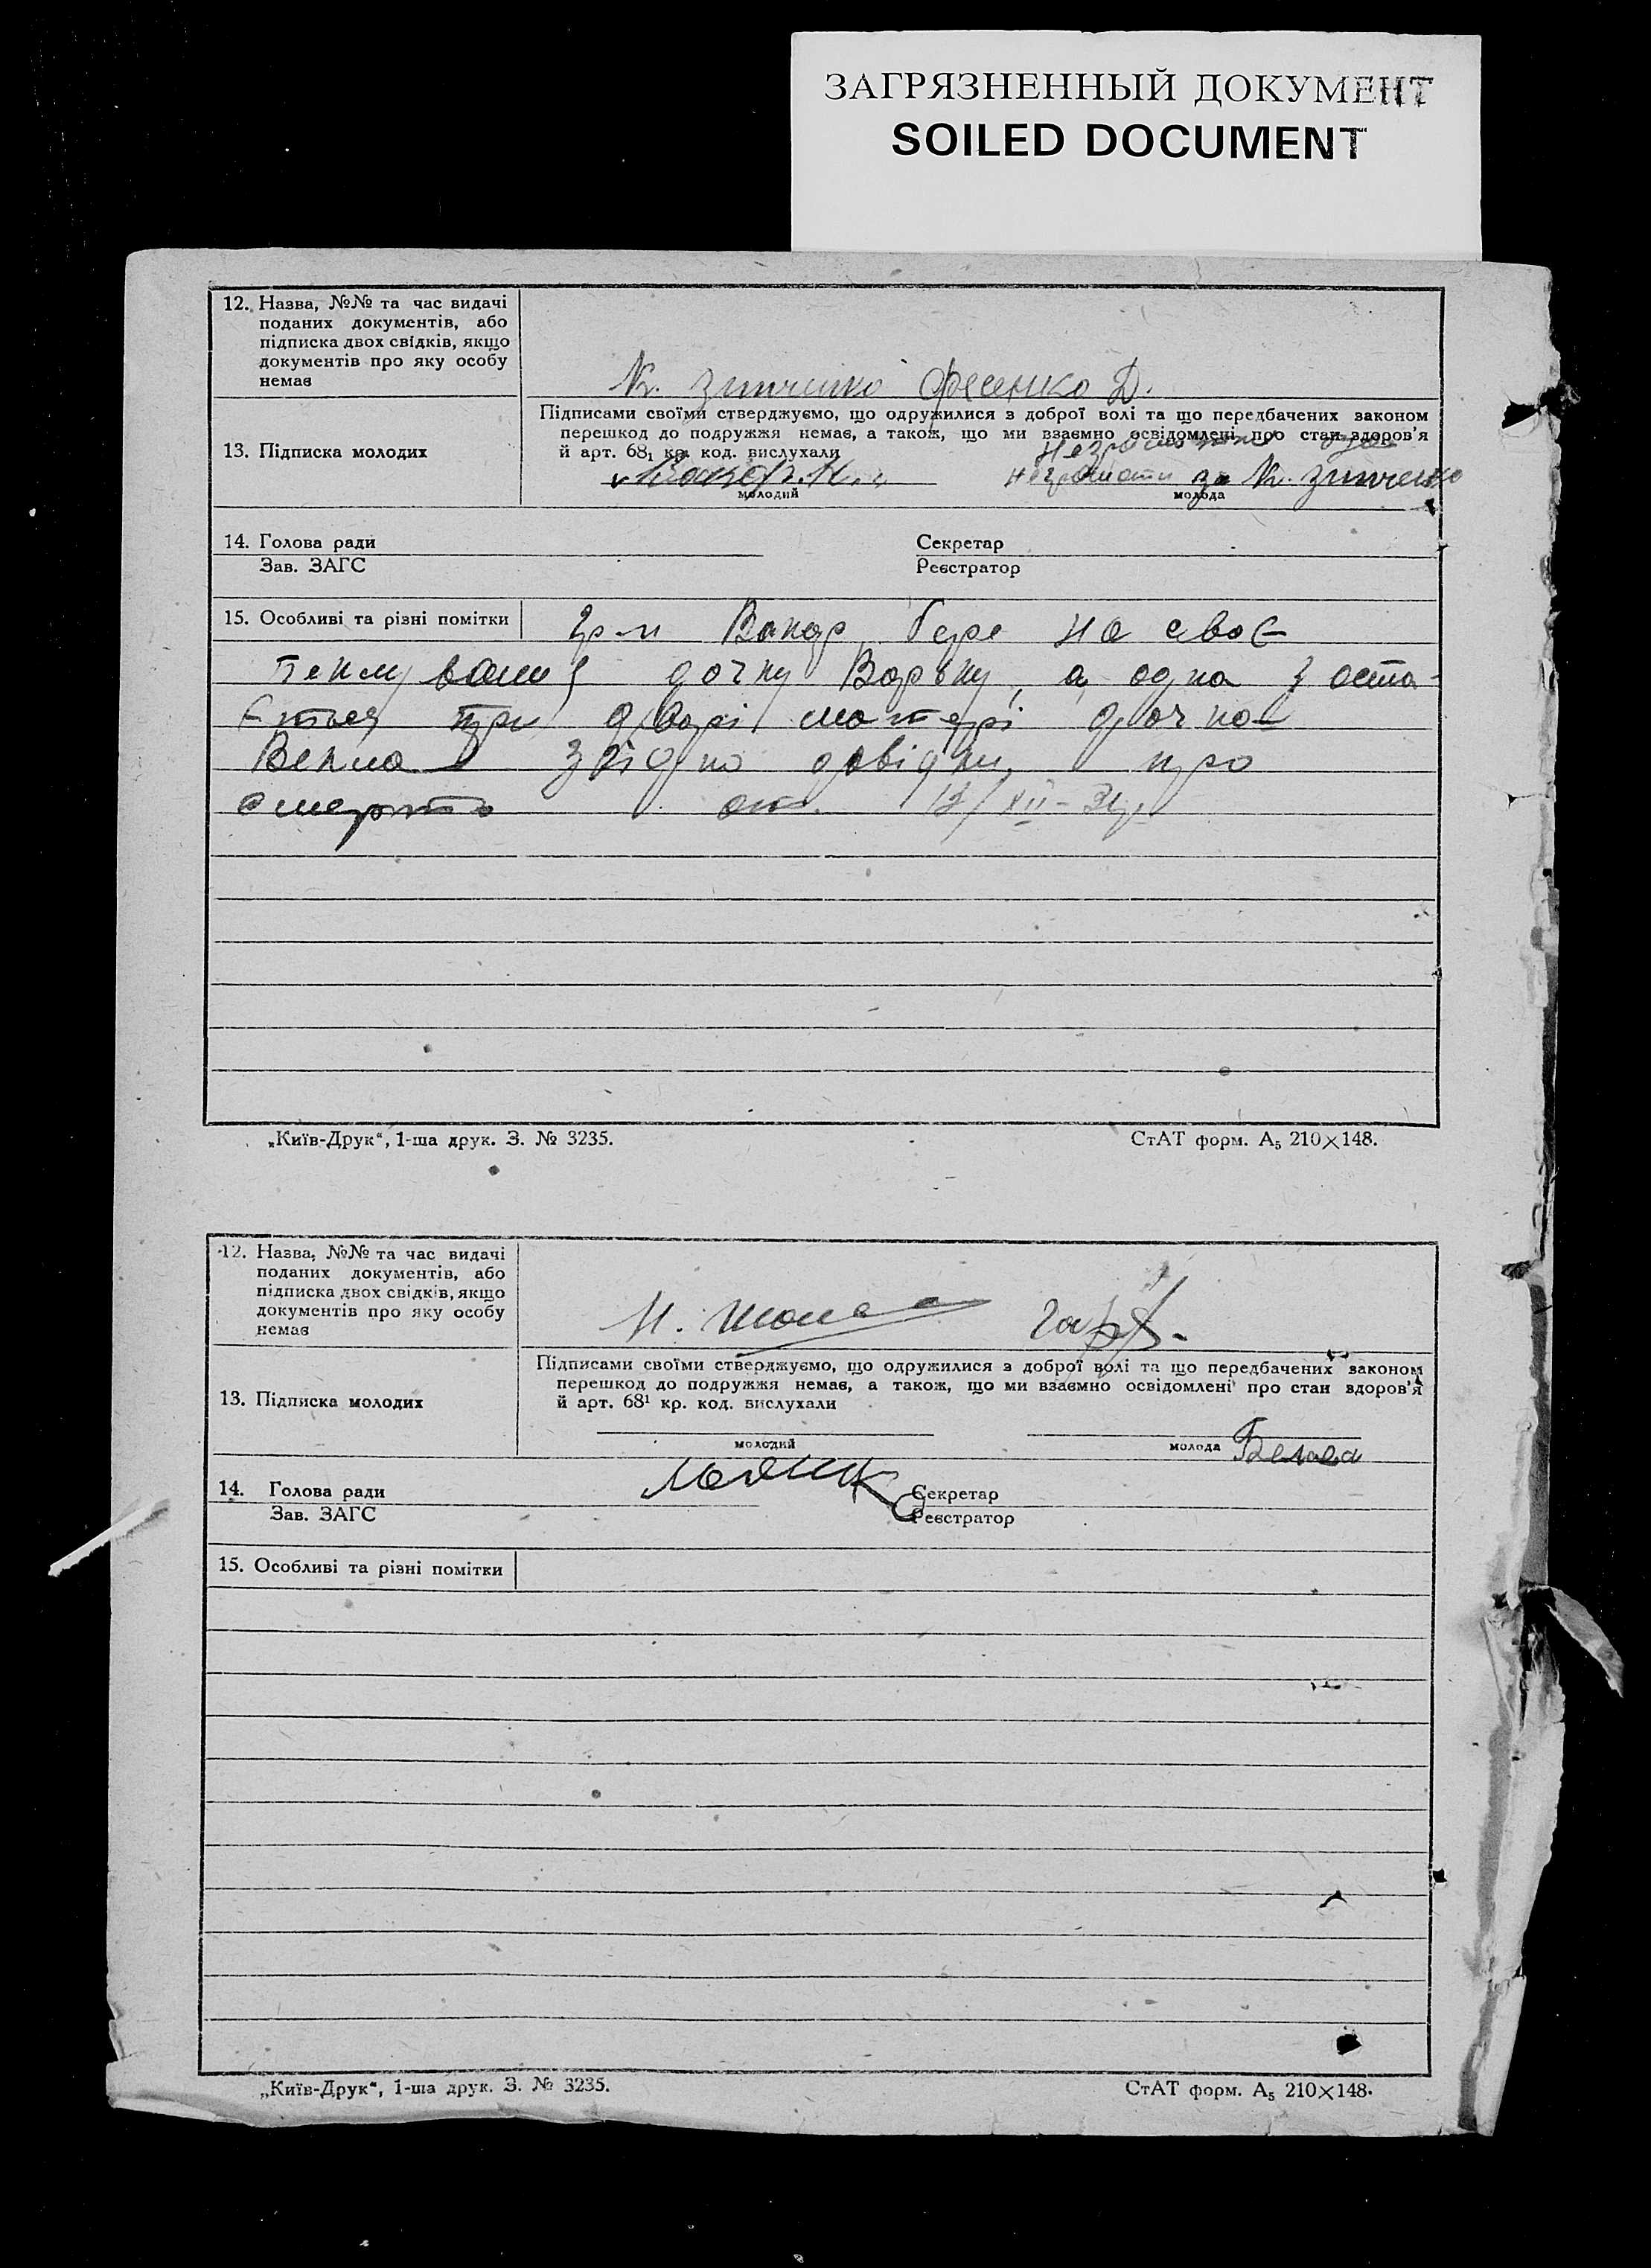 ЗАГРЯЗНЕННЫЙ ДОКУМЕНТ
SOILED DOCUMENT
12. Назва, №№ та час видачі
поданих документів, або
підписка двох свідків, якщо
документів про яку особу
немає
Зинченко Фесенко Д.
13. Підписка молодих
Підписами своїми стверджуємо, що одружилися з доброї волі та що передбачених законом
перешкод до подружжя немає, а також, що ми взаємно освідомлені про стан здоров'я
й арт. 68₁ кр. код. вислухали
за Зинченко
молодий
молода
14. Голова ради
Секретар
Зав. ЗАГС
Реєстратор
15. Особливі та різні помітки
гр-н бере на своє
дочку Варьку, а одна з оста-
ється при дворі матері дочка
Векла згідно довідки про
смерть от
12. Назва, №№ та час видачі
поданих документів, або
підписка двох свідків, якщо
документів про яку особу
немає
13. Підписка молодих
Підписами своїми стверджуємо, що одружилися з доброї волі та що передбачених законом
перешкод до подружжя немає, а також, що ми взаємно освідомлені про стан здоров'я
й арт. 68¹ кр. код. вислухали
молодий
молода
14. Голова ради
Секретар
Зав. ЗАГС
Реєстратор
15. Особливі та різні помітки
„Київ-Друк“, 1-ша друк. З. № 3235.
СтАТ форм. А₅ 210×148.
„Київ-Друк“, 1-ша друк. З. № 3235.
СтАТ форм. А₅ 210×148.